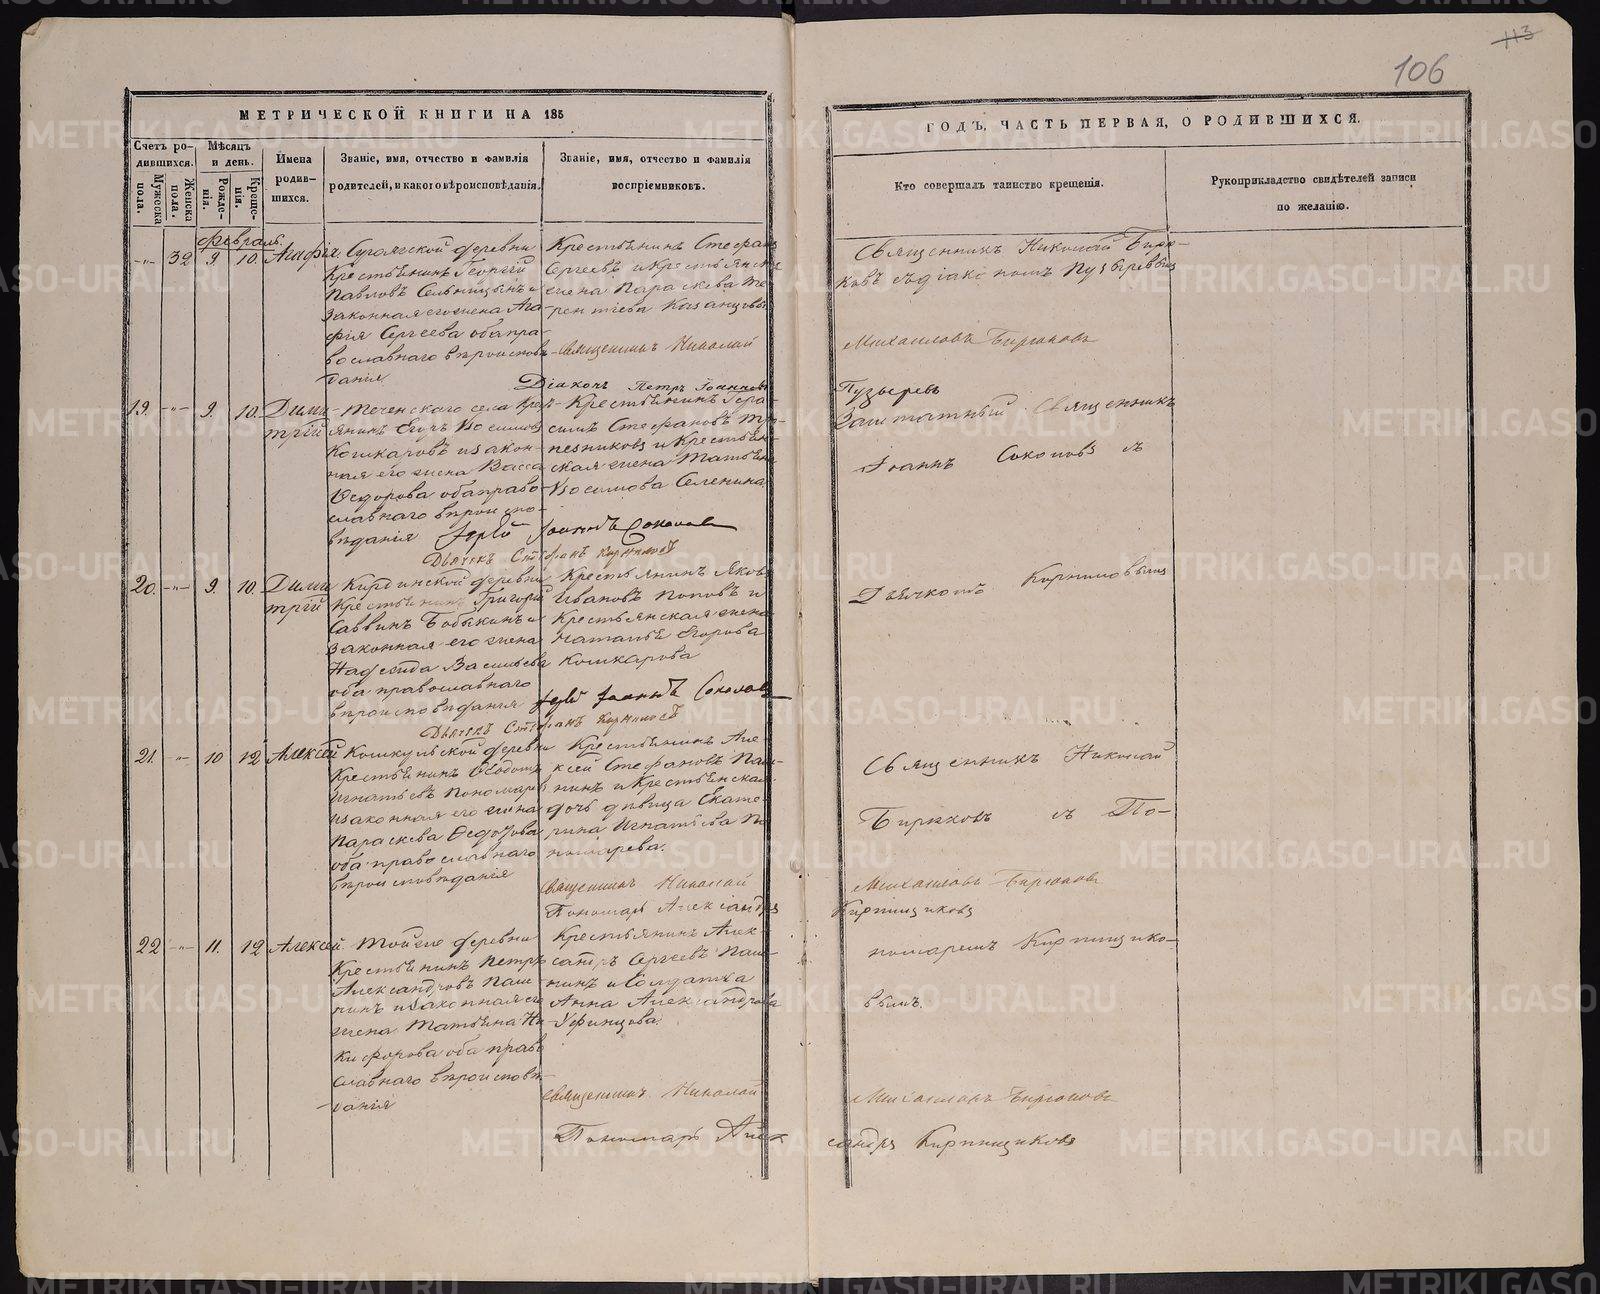 113
106
МЕТРИЧЕСКОЙ КНИГИ НА 185
ГОДЪ, ЧАСТЬ ПЕРВАЯ, О РОДИВШИХСЯ.
Счетъ ро-
дившихся.
Мужеска
пола.
Женска
пола.
Мѣсяцъ
и день.
Рожде-
нія.
Креще-
нія.
Имена
родив-
шихся.
Званіе, имя, отчество и фамилія
родителей, и какого вѣроисповѣданія.
Званіе, имя, отчество и фамилія
воспріемниковъ.
Кто совершалъ таинство крещенія.
Рукоприкладство свидѣтелей записи
по желанію.
февраль.
32 9. 10. Агафія
деревни
Крестьянинъ Георгій
Павловъ
законная его жена Ага-
фія Сергеева оба пра-
вославнаго вѣроисповѣ-
данія
Крестьянинъ Стефанъ
Сергеевъ и Крестьянская
жена Параскева Те-
рентіева Казанцовы
Священникъ Николай Бирю-
ковъ съ діакономъ Пузыревымъ
Священникъ Николай Михаиловъ Бирюковъ
Діаконъ Петръ Іоанновъ Пузыревъ
19. 9. 10. Дими-
трій
Теченскаго села Крестъ-
янинъ Егоръ Изосимовъ
Кошкаровъ и закон-
ная его жена Васса
Ѳедорова оба право-
славнаго вѣроиспо-
вѣданія
Крестьянинъ Гера-
симъ Стефановъ Тра-
пезниковъ и Крестьян-
ская жена Татьяна
Изосимова Селенина
Заштатный Священникъ
Іоаннъ Соколовъ съ
Іерей Іоаннъ Соколовъ
Дьячекъ Стефанъ Кирпиловъ
20. 9. 10. Дими-
трій
Кирдинской деревни
Крестьянинъ Григорій
Саввинъ Бобыкинъ и
законная его жена
Надежда Васильева
оба православнаго
вѣроисповѣданія
Крестьянинъ Яковъ
Ивановъ Поповъ и
Крестьянская жена
Наталья Егорова
Кошкарова
Дьячкомъ
Іерей Іоаннъ Соколовъ
Дьячекъ Стефанъ
21. 10 12 Алексей
Кошкульской деревни
Крестьянинъ Ѳеодотъ
Игнатьевъ Пономаревъ
и законная его жена
Параскева Ѳедотова
оба православнаго
вѣроисповѣданія
Крестьянинъ Але-
ксей Стефановъ Паш-
нинъ и Крестьянская
дочь дѣвица Екате-
рина Игнатьева По-
номарева.
Священникъ Николай
Бирюковъ съ По-
Священникъ Николай Михаиловъ Бирюковъ
Пономарь Александръ Кирпищиковъ
22 11. 12 Алексей
Той же деревни
Крестьянинъ Петръ
Александровъ Паш-
нинъ и законная его
жена Татьяна Ни-
кифорова оба право
славнаго вѣроисповѣ-
данія
Крестьянинъ Алек-
сандръ Сергеевъ Паш-
нинъ и Солдатка
Анна Александрова
Уфинцова.
номаремъ Кирпищико-
вымъ.
Священникъ Николай Михаиловъ Бирюковъ
Пономарь Александръ Кирпищиковъ
METRIKI.GASO-URAL.RU